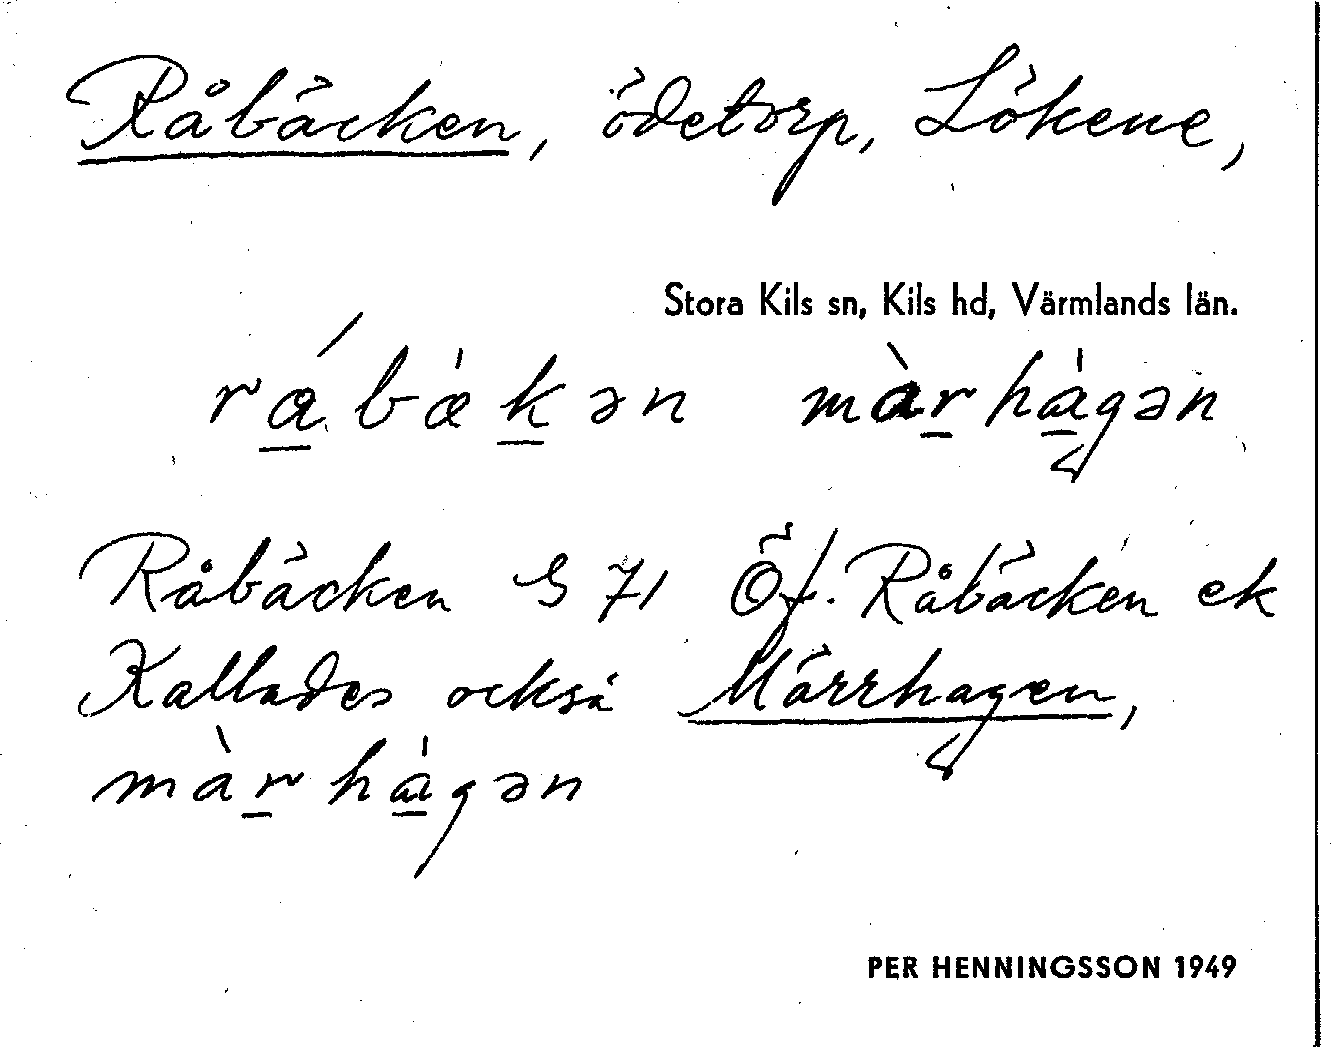 Råbäcken, ödetorp, Lökene,
Stora Kils sn, Kils hd, Värmlands län.
rá̱bàḵən màṟhà̱gən
Råbäcken S 71 Öf. Råbäcken ek
Kallades också Märrhagen,
màṟhà̱gən
PER HENNINGSSON 1949